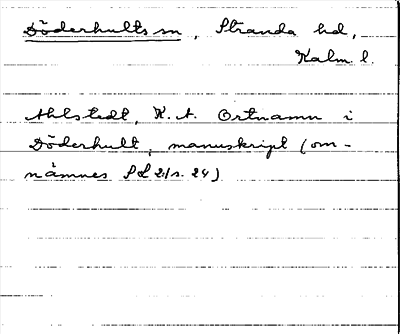 Döderhults sn, Stranda hd,
Kalm. l.
Ahlstedt, K. A. Ortnamn i
Döderhult, manuskript (om-
nämnes PL 21 s. 24)